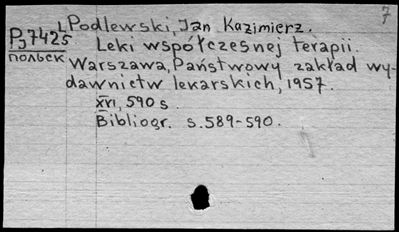 7
Podlewski, Jan Kazimierz.
Рј7425
польск
Leki współczesnej terapii.
Warszawa, Państwowy zakład wy-
dawnictw lekarskich, 1957.
XVI, 590 s.
Bibliogr. s. 589-590.